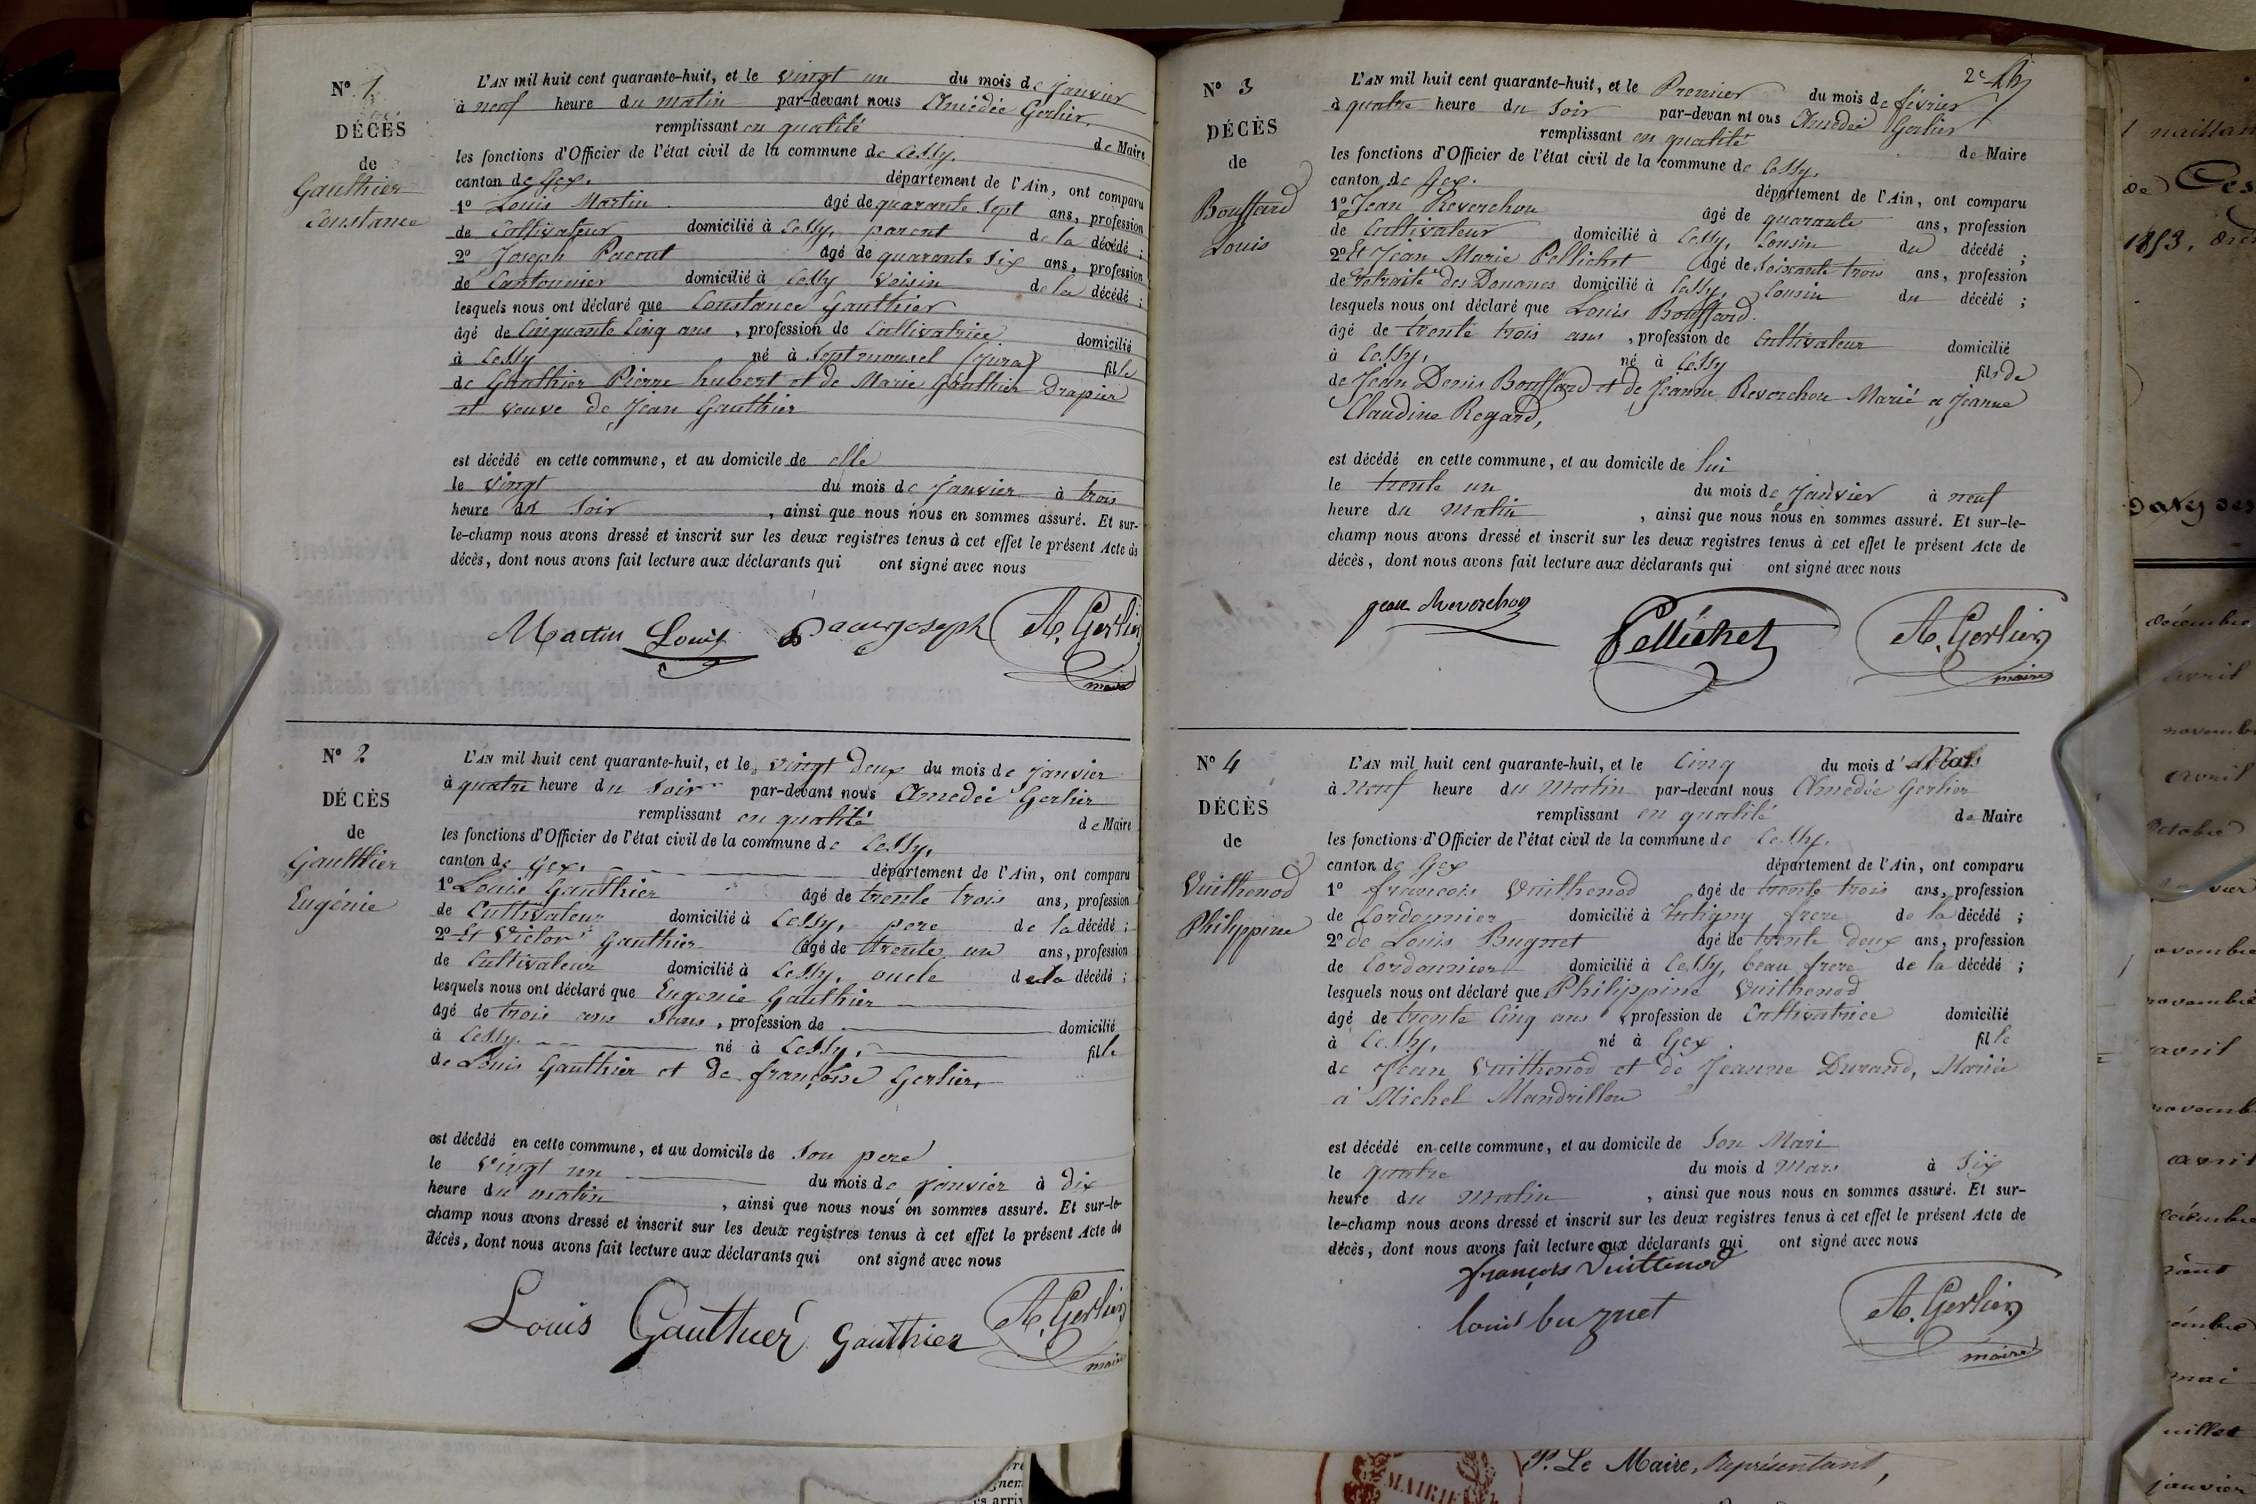 N° 1
DÉCÈS
de
Gauthier
Constance
L'AN mil huit cent quarante-huit, et le vingt un du mois de janvier
à neuf heure du matin par-devant nous Amédée Gerlier
remplissant en qualité de Maire
les fonctions d'Officier de l'état civil de la commune de Cessy.
canton de Gex. département de l'Ain, ont comparu
1° Louis Martin âgé de quarante sept ans, profession
de Cultivateur domicilié à Cessy, parent de la décédé ;
2° Joseph Pacout âgé de quarante six ans, profession
de Cantonnier domicilié à Cessy Voisin de la décédé ;
lesquels nous ont déclaré que Constance Gauthier
âgé de Cinquante Cinq ans, profession de Cultivatrice domicilié
à Cessy né à Septmoncel (jura) fille
de Gauthier Pierre hubert et de Marie Gauthier Drapier
et veuve de Jean Gauthier
est décédé en cette commune, et au domicile de elle
le vingt du mois de janvier à trois
heure du Soir, ainsi que nous nous en sommes assuré. Et sur-
le-champ nous avons dressé et inscrit sur les deux registres tenus à cet effet le présent Acte de
décès, dont nous avons fait lecture aux déclarants qui ont signé avec nous
Martin Louis joseph A. Gerlier
maire
N° 2
DÉCÈS
de
Gaulthier
Eugénie
L'AN mil huit cent quarante-huit, et le vingt deux du mois de janvier
à quatre heure du Soir par-devant nous Amédée Gerlier
remplissant en qualité de Maire
les fonctions d'Officier de l'état civil de la commune de Cessy,
canton de Gex. département de l'Ain, ont comparu
1° Louis Gauthier âgé de trente trois ans, profession
de Cultivateur domicilié à Cessy, pere de la décédé ;
2° Et Victor Gauthier âgé de trente un ans, profession
de Cultivateur domicilié à Cessy, oncle de la décédé ;
lesquels nous ont déclaré que Eugenie Gauthier
âgé de trois ans Sans, profession de domicilié
à Cessy né à Cessy, fille
de Louis Gauthier et de françoise Gerlier
est décédé en cette commune, et au domicile de Son pere
le vingt un du mois de janvier à dix
heure du matin, ainsi que nous nous en sommes assuré. Et sur-le-
champ nous avons dressé et inscrit sur les deux registres tenus à cet effet le présent Acte de
décès, dont nous avons fait lecture aux déclarants qui ont signé avec nous
Louis Gauthier Gauthier A. Gerlier
maire
2e
N° 3
DÉCÈS
de
Bouffard
Louis
L'AN mil huit cent quarante-huit, et le Premier du mois de février
à quatre heure du Soir par-devan nt ous Amédée Gerlier
remplissant en qualité de Maire
les fonctions d'Officier de l'état civil de la commune de Cessy,
canton de Gex. département de l'Ain, ont comparu
1° Jean Reverchon âgé de quarante ans, profession
de Cultivateur domicilié à Cessy, Cousin du décédé ;
2° Et Jean Marie Pellichet âgé de Soixante trois ans, profession
de retraité des Douanes domicilié à Cessy, Cousin du décédé ;
lesquels nous ont déclaré que Louis Bouffard.
âgé de trente trois ans, profession de Cultivateur domicilié
à Cessy, né à Cessy fils de
de Jean Denis Bouffard et de Jeanne Reverchon Marié a Jeanne
Claudine Regard,
est décédé en cette commune, et au domicile de lui
le trente un du mois de Janvier à neuf
heure du Matin, ainsi que nous nous en sommes assuré. Et sur-le-
champ nous avons dressé et inscrit sur les deux registres tenus à cet effet le présent Acte de
décès, dont nous avons fait lecture aux déclarants qui ont signé avec nous
jean Reverchon Pellichet A. Gerlier
maire
N° 4
DÉCÈS
de
Vuithenod
Philippine
L'AN mil huit cent quarante-huit, et le Cinq du mois d'
à Neuf heure du Matin par-devant nous Amédée Gerlier
remplissant en qualité de Maire
les fonctions d'Officier de l'état civil de la commune de Cessy.
canton de Gex département de l'Ain, ont comparu
1° françois Vuithenod âgé de trente trois ans, profession
de Cordonnier domicilié à frere de la décédé ;
2° de Louis Bugnet âgé de trente deux ans, profession
de Cordonnier domicilié à Cessy, beau frere de la décédé ;
lesquels nous ont déclaré que Philippine Vuithenod
âgé de trente Cinq ans, profession de Cultivatrice domicilié
à Cessy, né à Gex fille
de Jean Vuithenod et de Jeanne Durand, Mariée
a Michel Mandrillon
est décédé en cette commune, et au domicile de Son Mari
le quatre du mois d Mars à Six
heure du Matin, ainsi que nous nous en sommes assuré. Et sur-
le-champ nous avons dressé et inscrit sur les deux registres tenus à cet effet le présent Acte de
décès, dont nous avons fait lecture aux déclarants qui ont signé avec nous
françois Vuittenod
louis buguet A. Gerlier
maire
P. Le Maire, Représentant,
MAIRIE
naissan
de Ces
1853.
décembre
avril
novemb
avril
octobre
novembre
novembre
avril
novemb
avril
décembre
mai
juillet
janvier